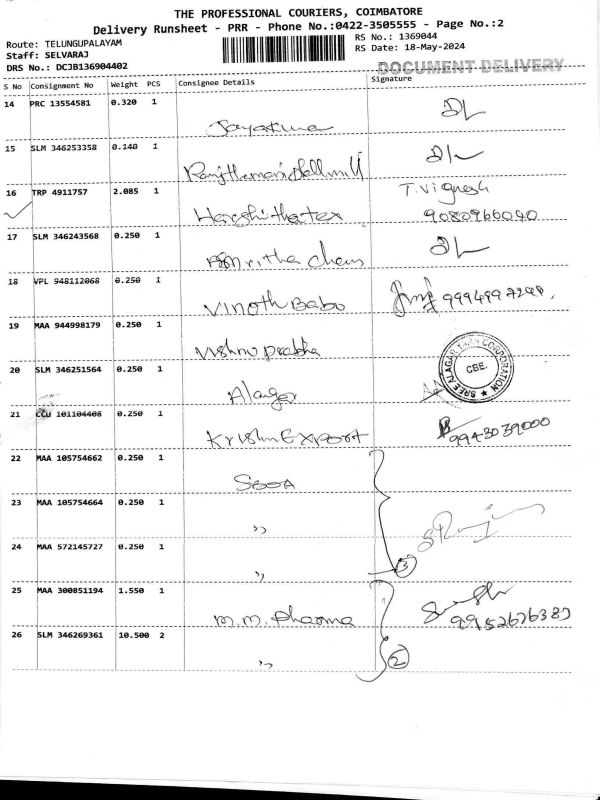 THE PROFESSIONAL COURIERS, COIMBATORE
Delivery Runsheet - PRR - Phone No.:0422-3505555 - Page No.:2
Route: TELUNGUPALAYAM
RS No.: 1369044
Staff: SELVARAJ
RS Date: 18-May-2024
DRS No.: DCJB136904402
DOCUMENT DELIVERY
S No Consignment No Weight PCS Consignee Details Signature
14 PRC 13554581 0.320 1
Jayakuma
15 SLM 346253358 0.140 1
16 TRP 4911757 2.085 1 T. Vignesh
Harshitha tex 9080966040
17 SLM 346243568 0.250 1
Amritha chem
18 VPL 948112068 0.250 1
Vinoth Babu
19 MAA 944998179 0.250 1
Vishnu prabha
SREE ALAGAR YARN CORPORATION
CBE.
20 SLM 346251564 0.250 1
Alager
21 CCU 101104408 0.250 1
Krishn Export 9943039000
22 MAA 105754662 0.250 1
SBOA
23 MAA 105754664 0.250 1
"
24 MAA 572145727 0.250 1
" 3
25 MAA 300851194 1.550 1
M.M. Pharma 9952676387
26 SLM 346269361 10.500 2
" 2